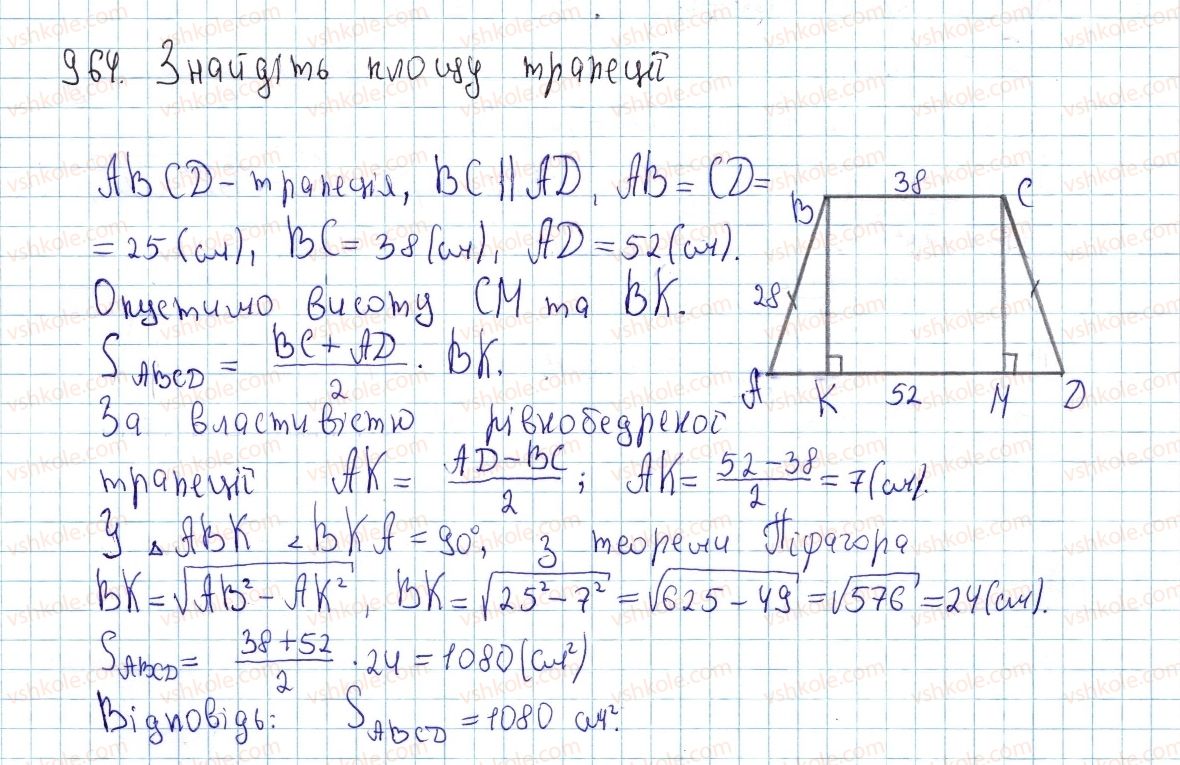 964. Знайдіть площу трапеції
ABCD – трапеція, BC || AD, AB = CD =
= 25 (см), BC = 38 (см), AD = 52 (см).
Опустимо висоту CM та BK.
S ABCD = (BC + AD)/2 · BK.
За властивістю рівнобедреної
трапеції AK = (AD – BC)/2 ; AK = (52 – 38)/2 = 7 (см).
У △ ABK ∠BKA = 90°, З теореми Піфагора
BK = √(AB² – AK²), BK = √(25² – 7²) = √(625 – 49) = √576 = 24 (см).
S ABCD = (38 + 52)/2 · 24 = 1080 (см²)
Відповідь: S ABCD = 1080 см².
38
B C
28
A K 52 M D
vshkole.com